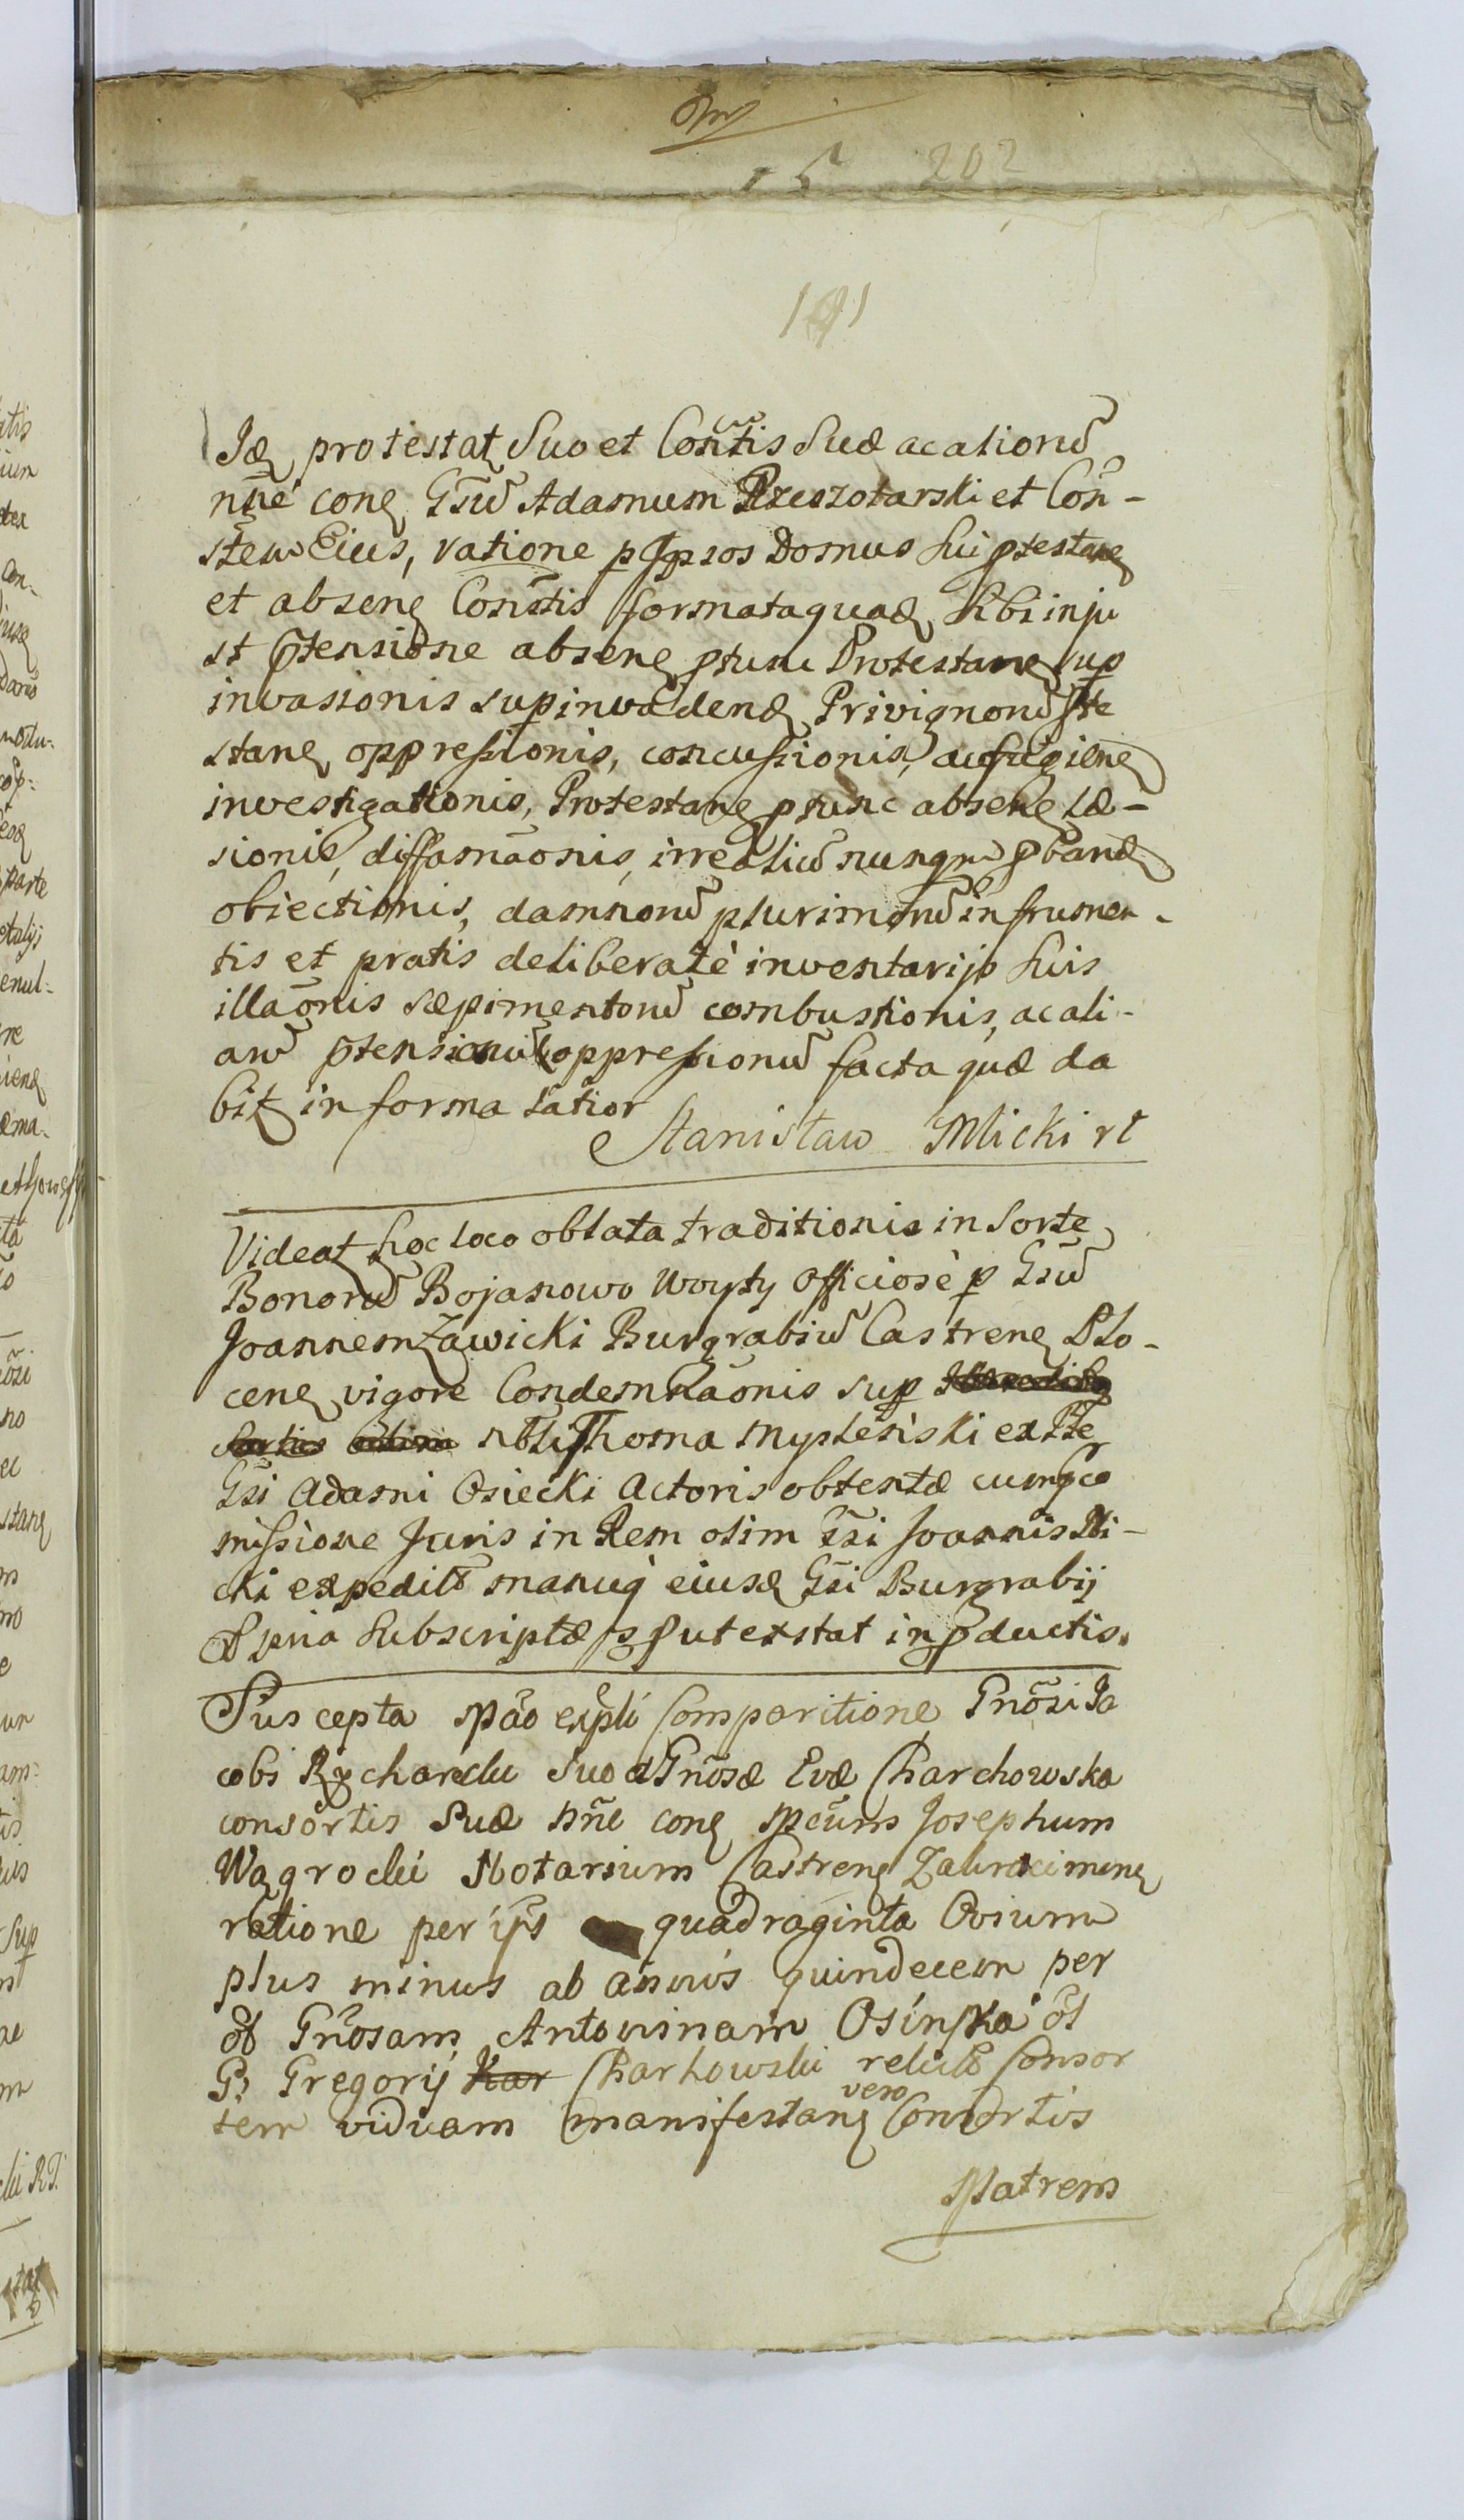 15 202
191
Idę protestat Suo et Con̄tis Suæ ac alionū
nn̄e cone Gsū Adamum Rzeszotarski et Con̄-
stem Eius, ratione p Ipsos Domus sui ptestane
et absene Con̄stis formata quadę sibi inju
st p̄tensione absene ptunc Protestane sup
invasionis sup invadendę Privignonū Pte
stane oppressionis, concussionis, aufugiene
investigationis, Protestane ptunc absene Læ-
sionis, diffamāonis, irrealiū nunqm pbandę
obiectionis, damnonū plurimonū in frumen-
tis et pratis deliberatè inventarijs suis
illaōnis sæpimentonū combustionis, ac ali-
arū p̄tensionū oppressionū facta quæ da
bit in forma latior
Stanisław Mlicki rt
Videat hoc loco oblata traditionis in Sorte
Bonorū Bojanowo Woyty Officiosè p Gsū
Joannem Zawicki Burgrabiū Castrene Plo-
cene vigore Condemnāonis sup
Nb̄li Thoma Myslenski ex Pte
Gsi Adami Osiecki Actoris obtentæ cumq co
missione Juris in Rem olim Gsi Joannis Mli-
cki expedita manuq eiusdę Gsi Burgrabij
ppria subscriptæ prout extat in pductis.
Suscepta Māo expli Comparitione Gnōsi Ja
cobi Rychardu Suo et Gnōsæ Evæ Charchowska
consortis Suæ nn̄e cone Mcūm Josephum
Wągrocki Notarium Castrene Zakroczimene
ratione per ip̄s quadraginta Ovium
plus minus ab annis quindecem per
ol Gnōsam Antoninam Osinska ol
Gs Gregorij Kar Charhowski relictā Consor
tem viduam manifestane vero Consortis
Matrem